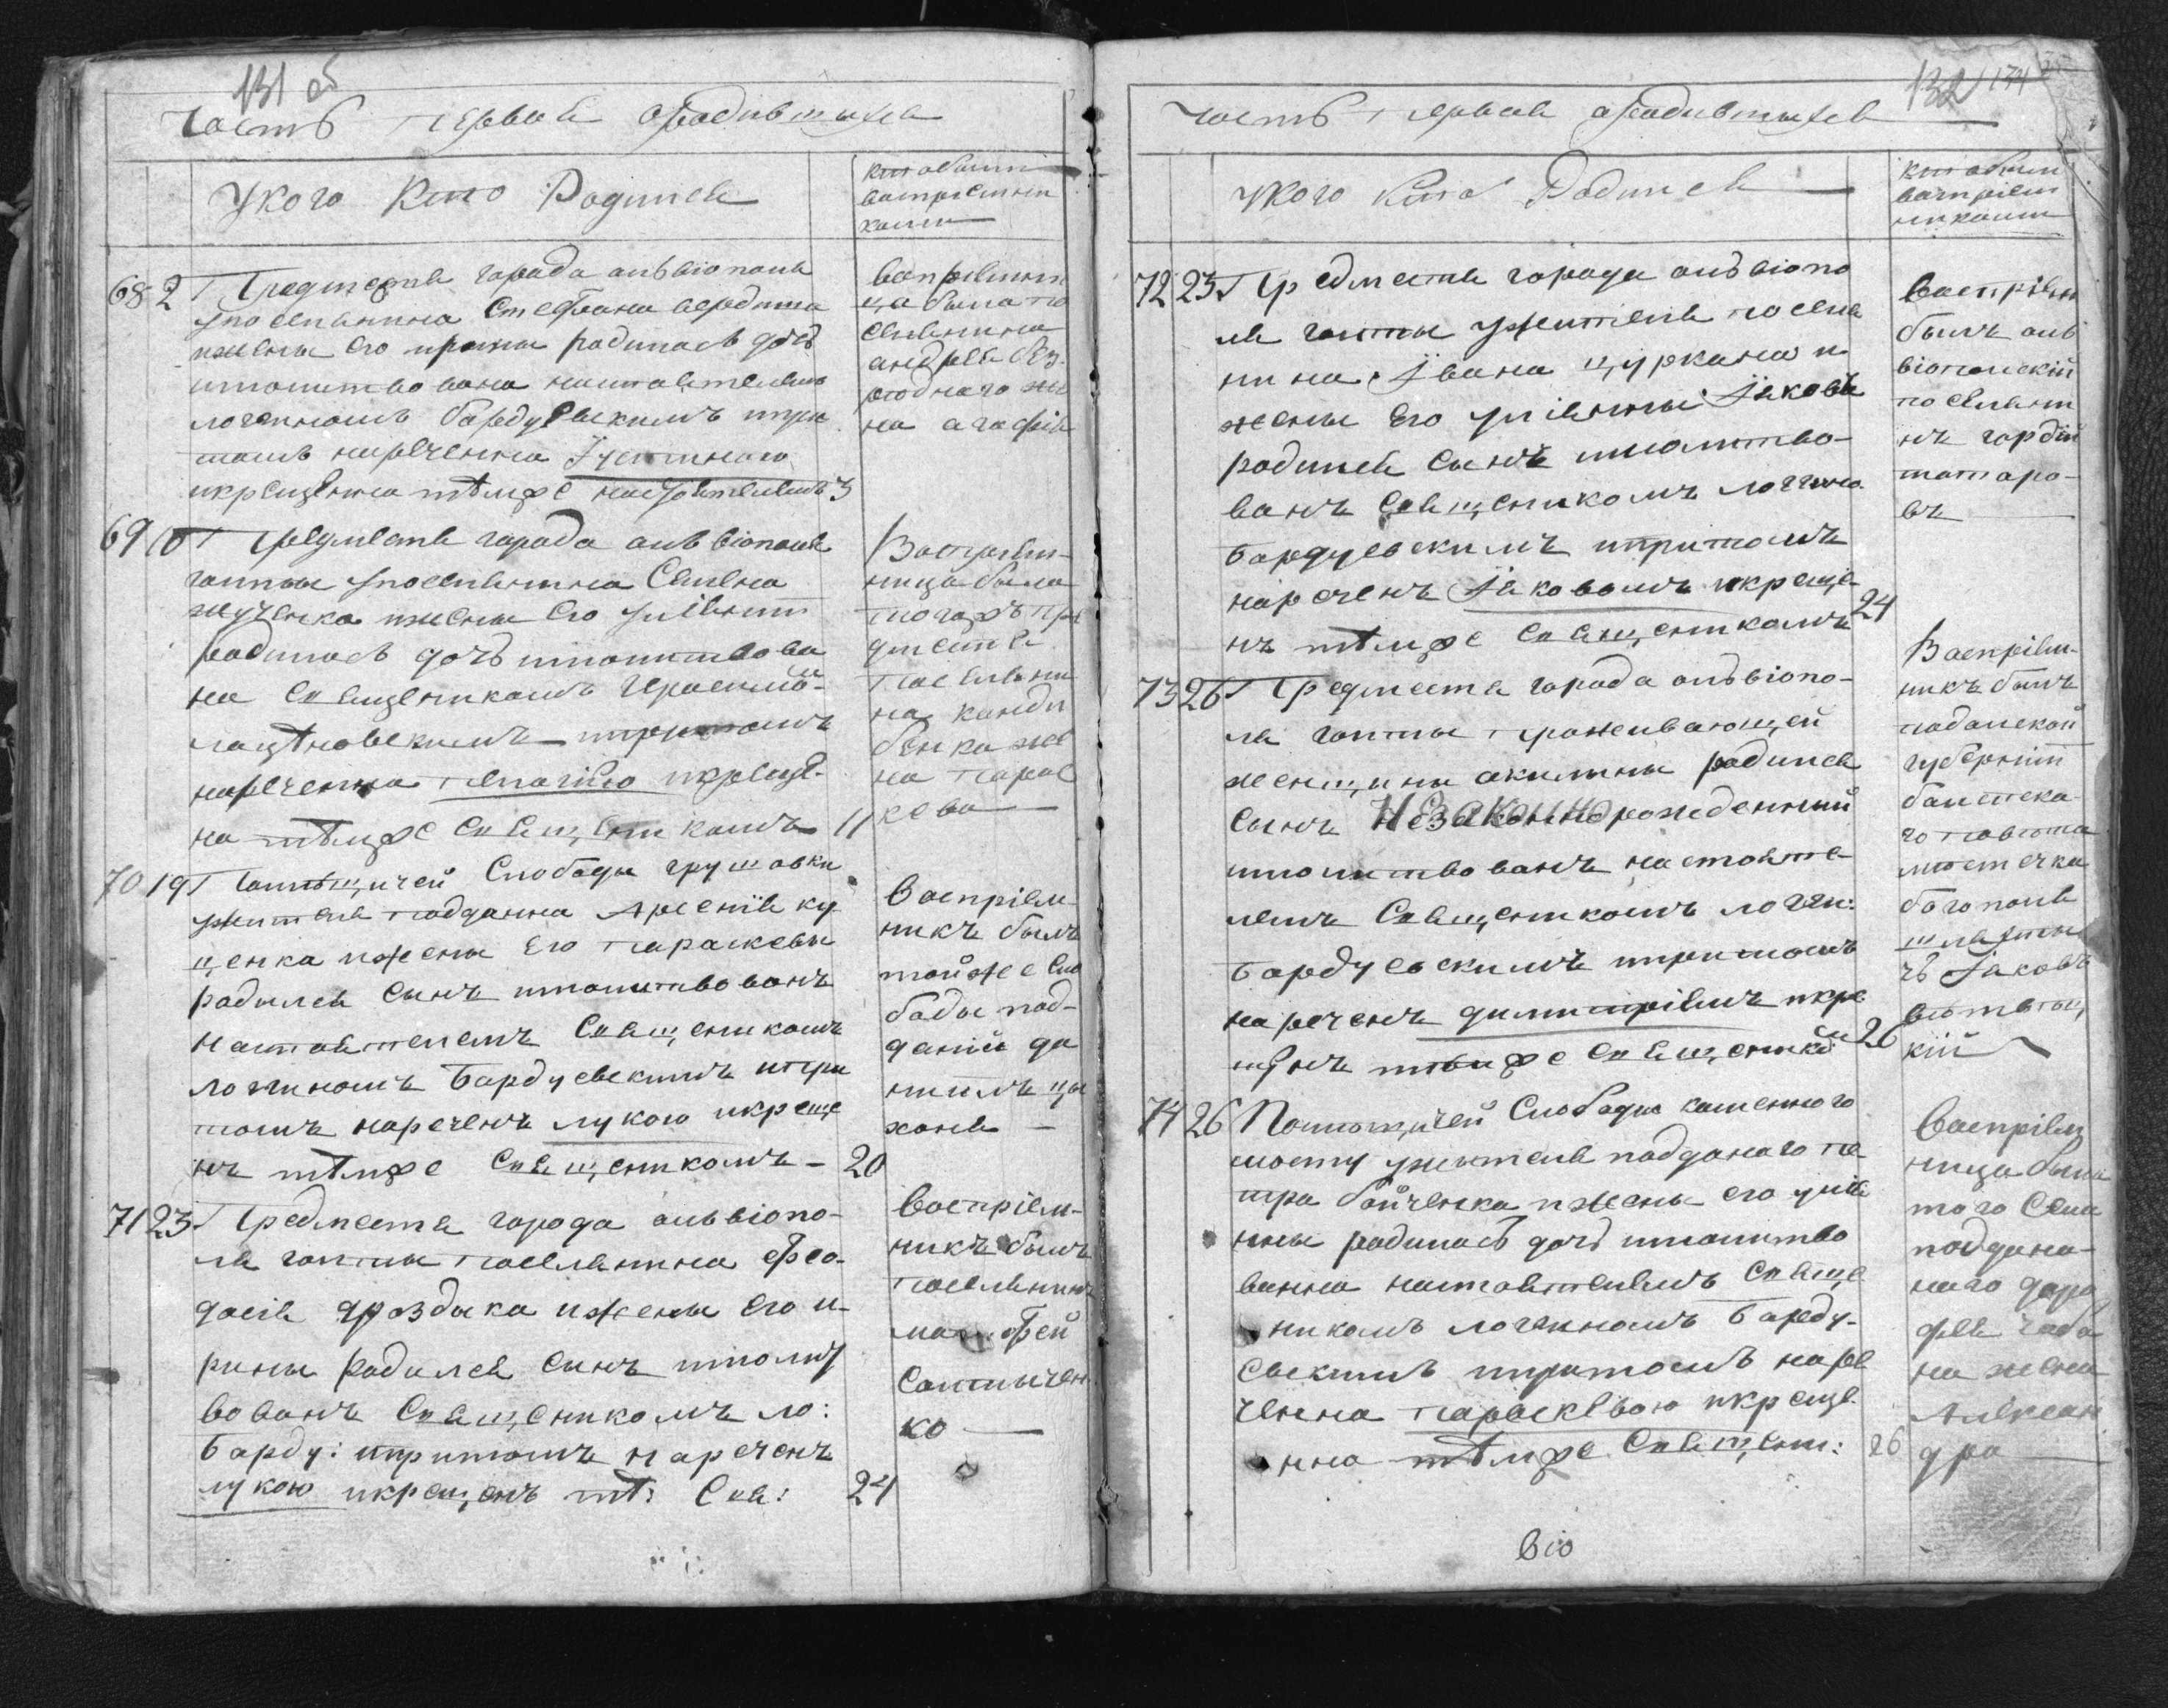 131 об
Часть первая ородившихся
Укого Кто Родился
кто были
восприемни
ками
68 2 Предместя города ольвiополя
упоселянина Стефана
ижены его ирины родилась дочь
имолитвована настоятелемъ
логгиномъ бардуевскимъ ипри
томъ нареченна Iустиною
икрещенна тѣмже настоятелемъ 3
восприемни
ца была по
селянина
андрея без
роднаго же
на агафiя
69 10 Предместя города ольвiополя
голты упоселянина Семена
жученка ижены его улiянни
родилась дочь имолитвова
на Священникомъ
ипритомъ
нареченна пелагiею икреще-
на тѣмже Священникомъ 11
Восприем-
ница была
тогожъ пре
дместя
поселяни
на
бенка же
на парас
кева
70 19 Помѣщичей Слободы грушовки
ужителя подданна Арсенiя ку
ценка ижены Его параскевы
родился Сынъ имолитвованъ
Настоятелемъ Священникомъ
логгиномъ Бардуевскимъ ипри
томъ нареченъ лукою икреще
нъ тѣмже Священникомъ - 20
Воспрiем
никъ былъ
тойже Сло
боды под-
даный да
нiилъ цы
хоня -
71 23 Предместя города ольвiопо-
ля голты поселянина Фео-
досiя дроздика ижены его и-
рины родился Сынъ имолит
вованъ Священникомъ ло:
барду: ипритомъ нареченъ
лукою икрещенъ тѣ: Свя: 24
Воспрiем-
никъ былъ
поселянинъ
матфей
Солтычен
ко —
132 174
Часть первая ородившихся
Укого Кто Родился
кто были
воспрiем
никами
72 23 Предместя города ольвiопо
ля голты ужителя поселя
нина Iвана цуркана и
жены Его улiянны
родился Сынъ имолитво-
ванъ Священникомъ логгино.
Бардуевскимъ ипритомъ
нареченъ Iяковомъ икреще
нъ тѣмже Священникомъ 24
Воспрiем
былъ оль
вiопольскiй
поселяни
нъ гордiй
татаро-
въ
73 26 Предместя города ольвiопо-
ля голты проживающей
женщины акилины родился
Сынъ Незаконнорожденный
имолитвованъ настояте-
лемъ Священникомъ логги:
Бардуевскимъ ипритомъ
нареченъ димитрiемъ икре
щенъ тѣмже Священико 26
Воспрiем-
никъ былъ
подолской
губернiи
балтска
го повѣта
мѣстечка
богополя
шляхти
чъ Iаковъ
кiй
74 26 Помѣщичей Слободы каменного
мосту ужителя подданого пе
тра бойченка ижены его улiя
нны родилась дочь имолитво
ванна настоятелемъ Свяще
никомъ логгиномъ Барду-
евскимъ ипритомъ наре
ченна параскевою икреще
нна тѣмже Священи: 26
Воспрiем
ница была
того Села
поддана-
наго доро
фея
на жена
Алексан
дра